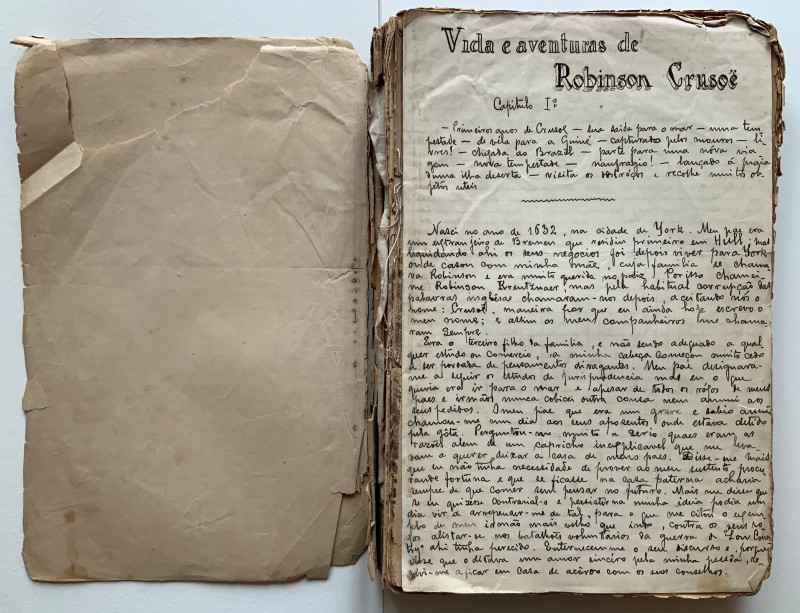 Vida e aventuras de
Robinson Crusoë
Capitulo Iº
— Primeiros anos de Crusoé — sua saida para o mar — uma tem
pestade — de vela para a Guiné — capturado pelos mouros — li
vres! — chegada ao Brazil — parte para uma nova via
gem — nova tempestade — naufragio! — lançado á praia
duma ilha deserta — visita os destroços e recolhe muitos ob
jétos uteis
Nasci no ano de 1632, na cidade de York. Meu pae era
um estranjeiro de Bremen que residiu primeiro em Hull, mas
liquidando ahi os seus negocios foi depois viver para York
onde casou com minha mãe, cuja familia se chama
va Robinson e era muito querida no paiz. Por isso chamei-
me Robinson Kreutznaer mas pela habitual corrupção das
palavras inglêsas chamaram-nos depois, aceitando nós o
nome: Crusoé, maneira por que eu ainda hoje escrevo o
meu nome; e assim os meus companheiros me chama
ram sempre.
Era o terceiro filho da familia, e não sendo adequado a qual
quer estudo ou comercio, a minha cabeça começou muito cedo
a ser povoada de pensamentos divagantes. Meu pae designara-
me a seguir os estudos de jurisprudencia mas eu o que
queria era ir para o mar e apesar de todos os rogos de meus
paes e irmãos nunca cobicei outra cousa nem anuui aos
seus pedidos. O meu pae que era um grave e sabio
chamou-me um dia aos seus aposentos onde estava detido
pela gôta. Perguntou-me muito a serio quaes eram as
razões alem de um capricho inexplicavel que me leva
vam a querer deixar a casa de meus paes. Disse-me mais
que eu não tinha necessidade de prover ao meu sustento procu
rando fortuna e que se ficasse na casa paterna acharia
sempre de que comer sem pensar no futuro. Mais me disse que
se eu quizesse contrarial-o e persistir na minha ideia podia um
dia vir a arrepender-me de tal, para o que me citou o exem
plo de meu irmão mais velho que indo, contra os seus ro
gos alistar-se nos batalhões voluntarios da guerra de "Low Coun
try" ahi tinha perecido. Enterneceu-me o seu discurso e, porque
visse que o ditava um amor sincero pela minha pessôa, re
solvi-me a ficar em casa de acôrdo com os seus conselhos.